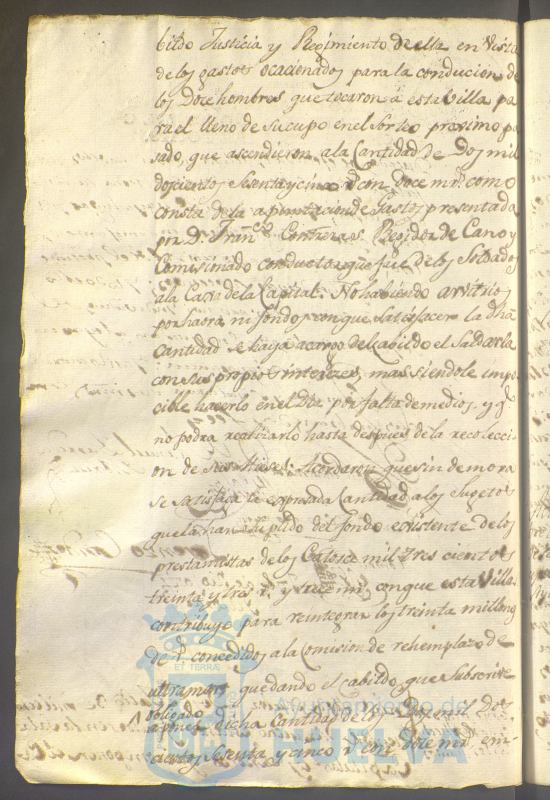 bildo Justicia y Regimiento de ella en Vista
de los gastos ocacionados para la conducion de
los Doce hombres que tocaron a esta Villa pa
ra el lleno de su cupo en el Sorteo proximo pa
sado, que ascendieron a la Cantidad de Dos mil
doscientos Sesenta y cinco rs con doce mrs como
consta de la apuntacion de Gastos presentada
por Dn Franco Contreras Regidor de Cano y
Comisionado conductor que fue de los Soldados
a la Caxa de la Capital. No habiendo arvitrios
por haora ni fondos con que satisfacer la dha
Cantidad se haya a cargo del Cabildo el Saldarla
con sus propios intereses, mas siendole impo
cible hacerlo en el Dia por falta de medios, y q
no podra realizarlo hasta despues de la recolecci
on de sus Mieses: Acordaron que sin demora
se satisfaga la expresada Cantidad a los Sugetos
que la han suplido del fondo existente de los
prestamistas de los Catorce mil tres cientos
treinta y tres rs y trece mrs con que esta Villa
contribuye para reintegrar los treinta millones
de rs concedidos a la Comision de rehemplazo de
ultramar, quedando el cabildo que Subscrive
obligado
a poner dicha Cantidad de los Dos mil dos
cientos Sesenta y cinco rs con doce mrs en
Ayuntamiento de
HUELVA
ET TERRAE